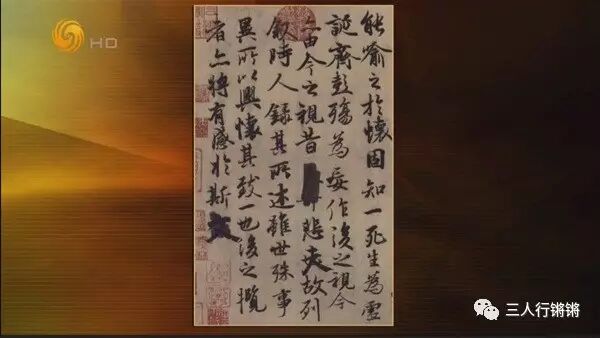 HD
能喻之於懷固知一死生為虛
誕齊彭殤為妄作後之視今
亦由今之視昔悲夫故列
敘時人錄其所述雖世殊事
異所以興懷其致一也後之攬
者亦將有感於斯文
三人行锵锵